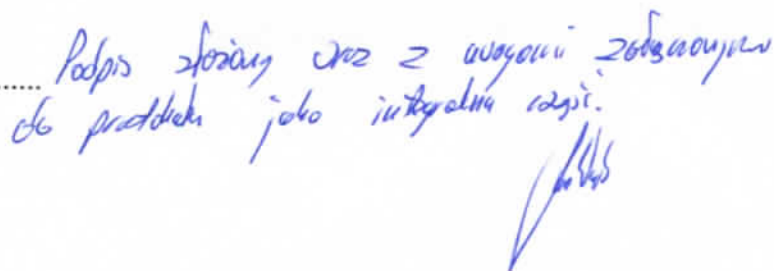 Podpis złożony wraz z uwagami załączonymi
do protokołu jako integralna część.